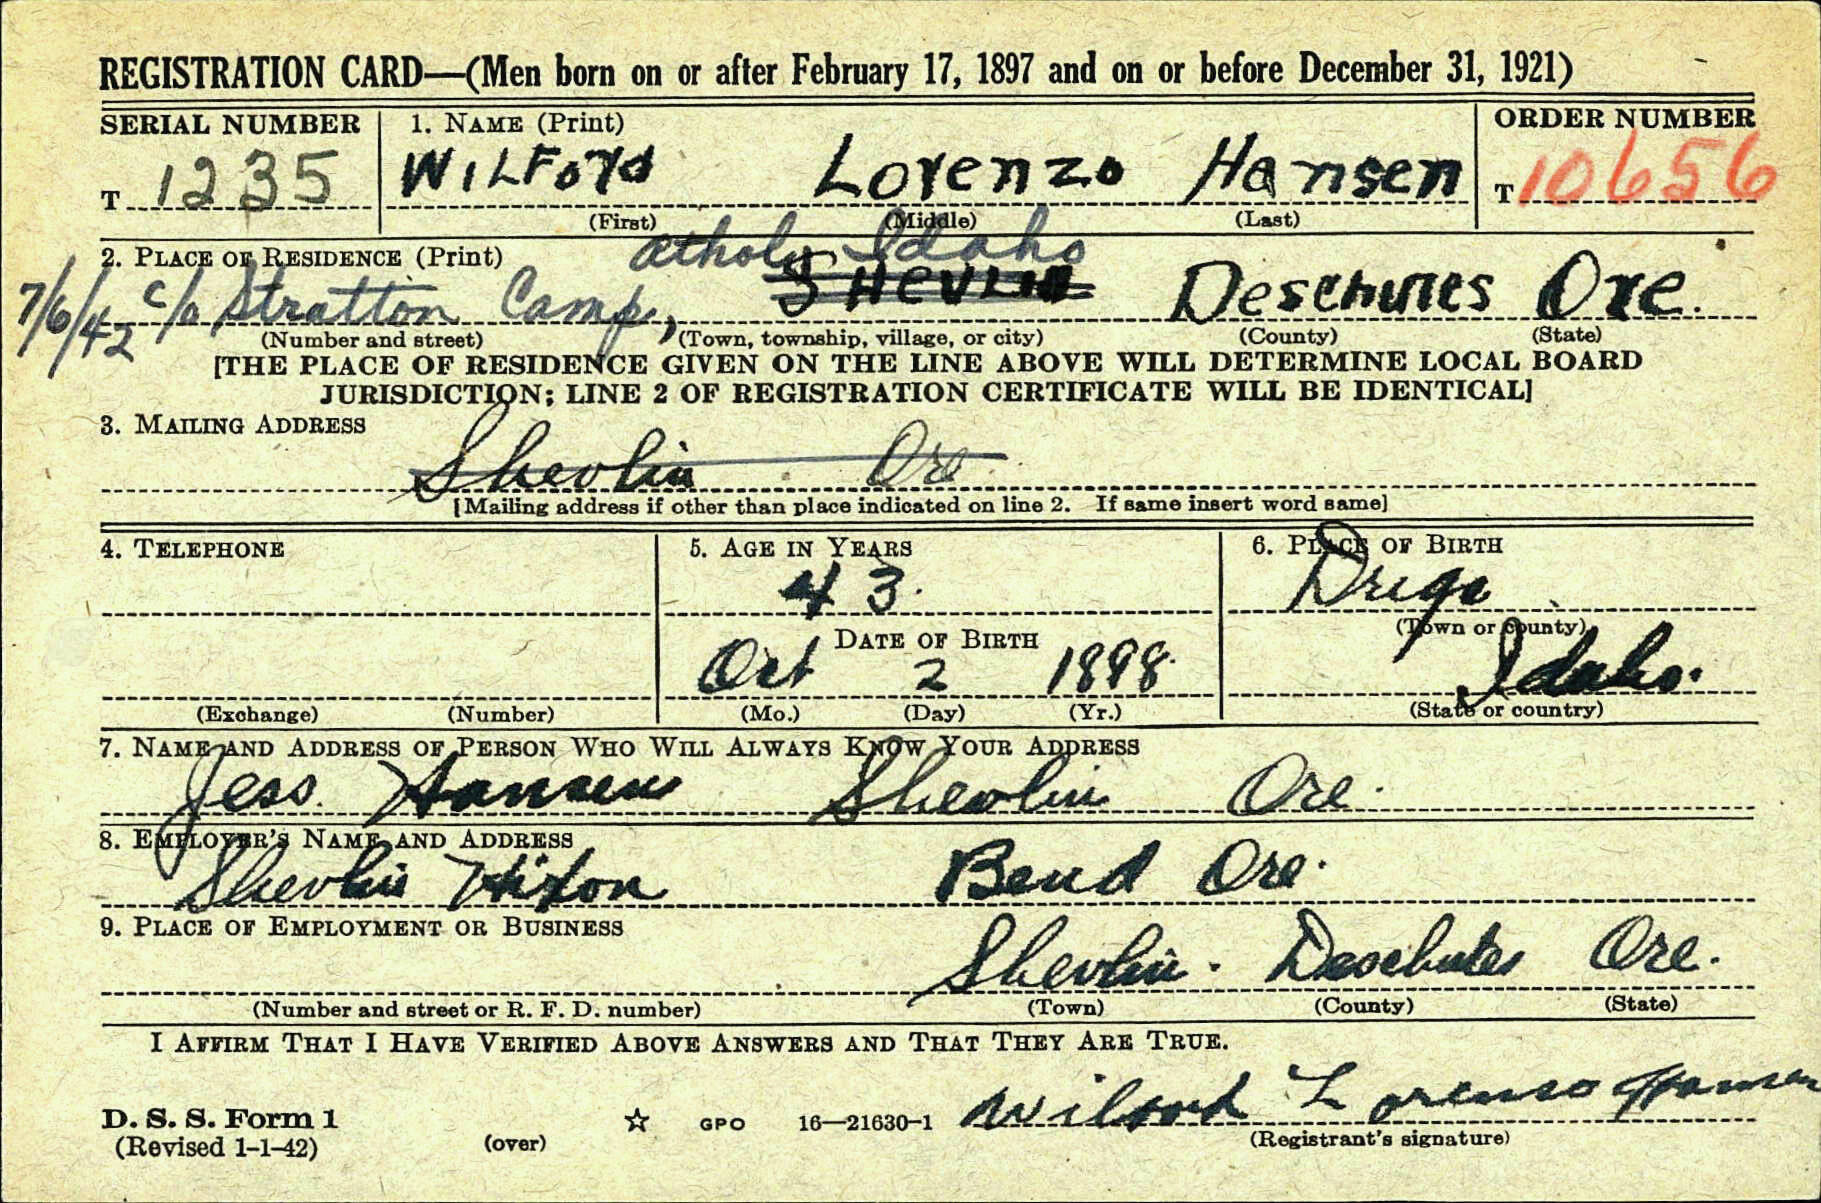 REGISTRATION CARD—(Men born on or after February 17, 1897 and on or before December 31, 1921)
SERIAL NUMBER 1. NAME (Print) ORDER NUMBER
T 1235 WILFord Lorenzo Hansen T 10656
(First) (Middle) (Last)
Athol, Idaho
2. PLACE OF RESIDENCE (Print)
7/6/42 c/o Stratton Camp, SHEVLIN Deschutes Ore.
(Number and street) (Town, township, village, or city) (County) (State)
[THE PLACE OF RESIDENCE GIVEN ON THE LINE ABOVE WILL DETERMINE LOCAL BOARD
JURISDICTION; LINE 2 OF REGISTRATION CERTIFICATE WILL BE IDENTICAL]
3. MAILING ADDRESS
Shevlin Ore
[Mailing address if other than place indicated on line 2. If same insert word same]
4. TELEPHONE 5. AGE IN YEARS 6. PLACE OF BIRTH
43. Drigs
(Town or county)
DATE OF BIRTH
Oct 2 1898 Idaho.
(Exchange) (Number) (Mo.) (Day) (Yr.) (State or country)
7. NAME AND ADDRESS OF PERSON WHO WILL ALWAYS KNOW YOUR ADDRESS
Jess. Hansen Shevlin Ore.
8. EMPLOYER'S NAME AND ADDRESS
Shevlin Hixon Bend Ore.
9. PLACE OF EMPLOYMENT OR BUSINESS
Shevlin. Deschutes Ore.
(Number and street or R. F. D. number) (Town) (County) (State)
I AFFIRM THAT I HAVE VERIFIED ABOVE ANSWERS AND THAT THEY ARE TRUE.
D. S. S. Form 1 GPO 16—21630-1 Wilford Lorenso Hansen
(Revised 1-1-42) (over) (Registrant's signature)